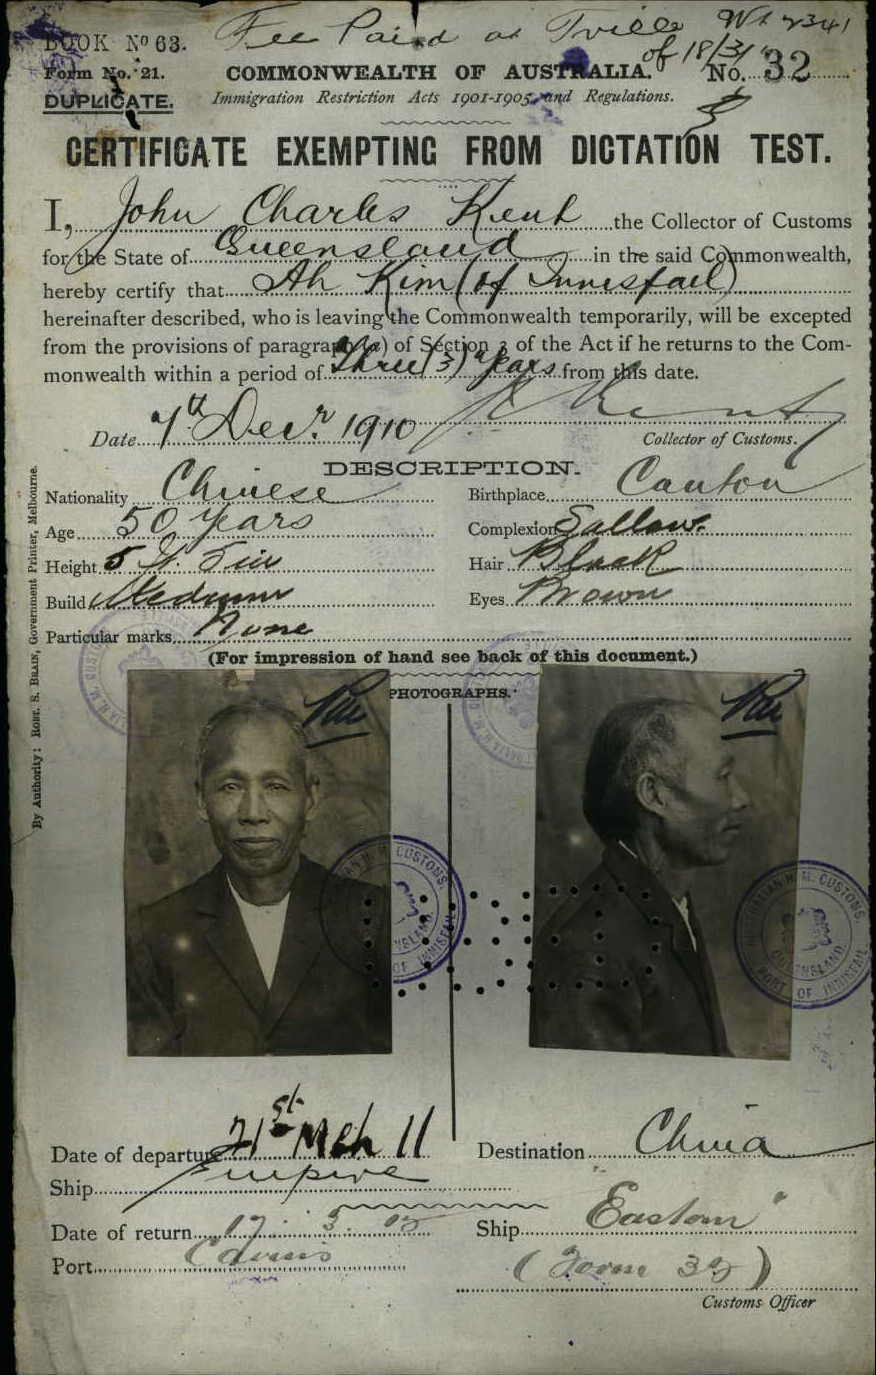 BOOK No 63. Fee Paid at Tville
of 18/3/11
Form No. 21. COMMONWEALTH OF AUSTRALIA. No. 32
DUPLICATE. Immigration Restriction Acts 1901-1905, and Regulations.
CERTIFICATE EXEMPTING FROM DICTATION TEST.
I, John Charles Kent the Collector of Customs
for the State of Queensland in the said Commonwealth,
hereby certify that Ah Kim (of Innisfail)
hereinafter described, who is leaving the Commonwealth temporarily, will be excepted
from the provisions of paragraph (a) of Section 3 of the Act if he returns to the Com-
monwealth within a period of three (3) years from this date.
Date 7th Decr. 1910 Kent
Collector of Customs.
DESCRIPTION.
Nationality Chinese Birthplace Canton
Age 50 years Complexion Sallow.
Height 5 ft. Hair Black
Build Medium Eyes Brown
Particular marks None
(For impression of hand see back of this document.)
PHOTOGRAPHS.
By Authority: ROBT. S. BRAIN, Government Printer, Melbourne.
AUSTRALIAN H. M. CUSTOMS.
QUEENSLAND.
PORT OF INNISFAIL
Date of departure 21st Mch 11 Destination China
Ship Empire
Date of return 17. 3. Ship Eastern
Port Cairns (Form 32)
Customs Officer